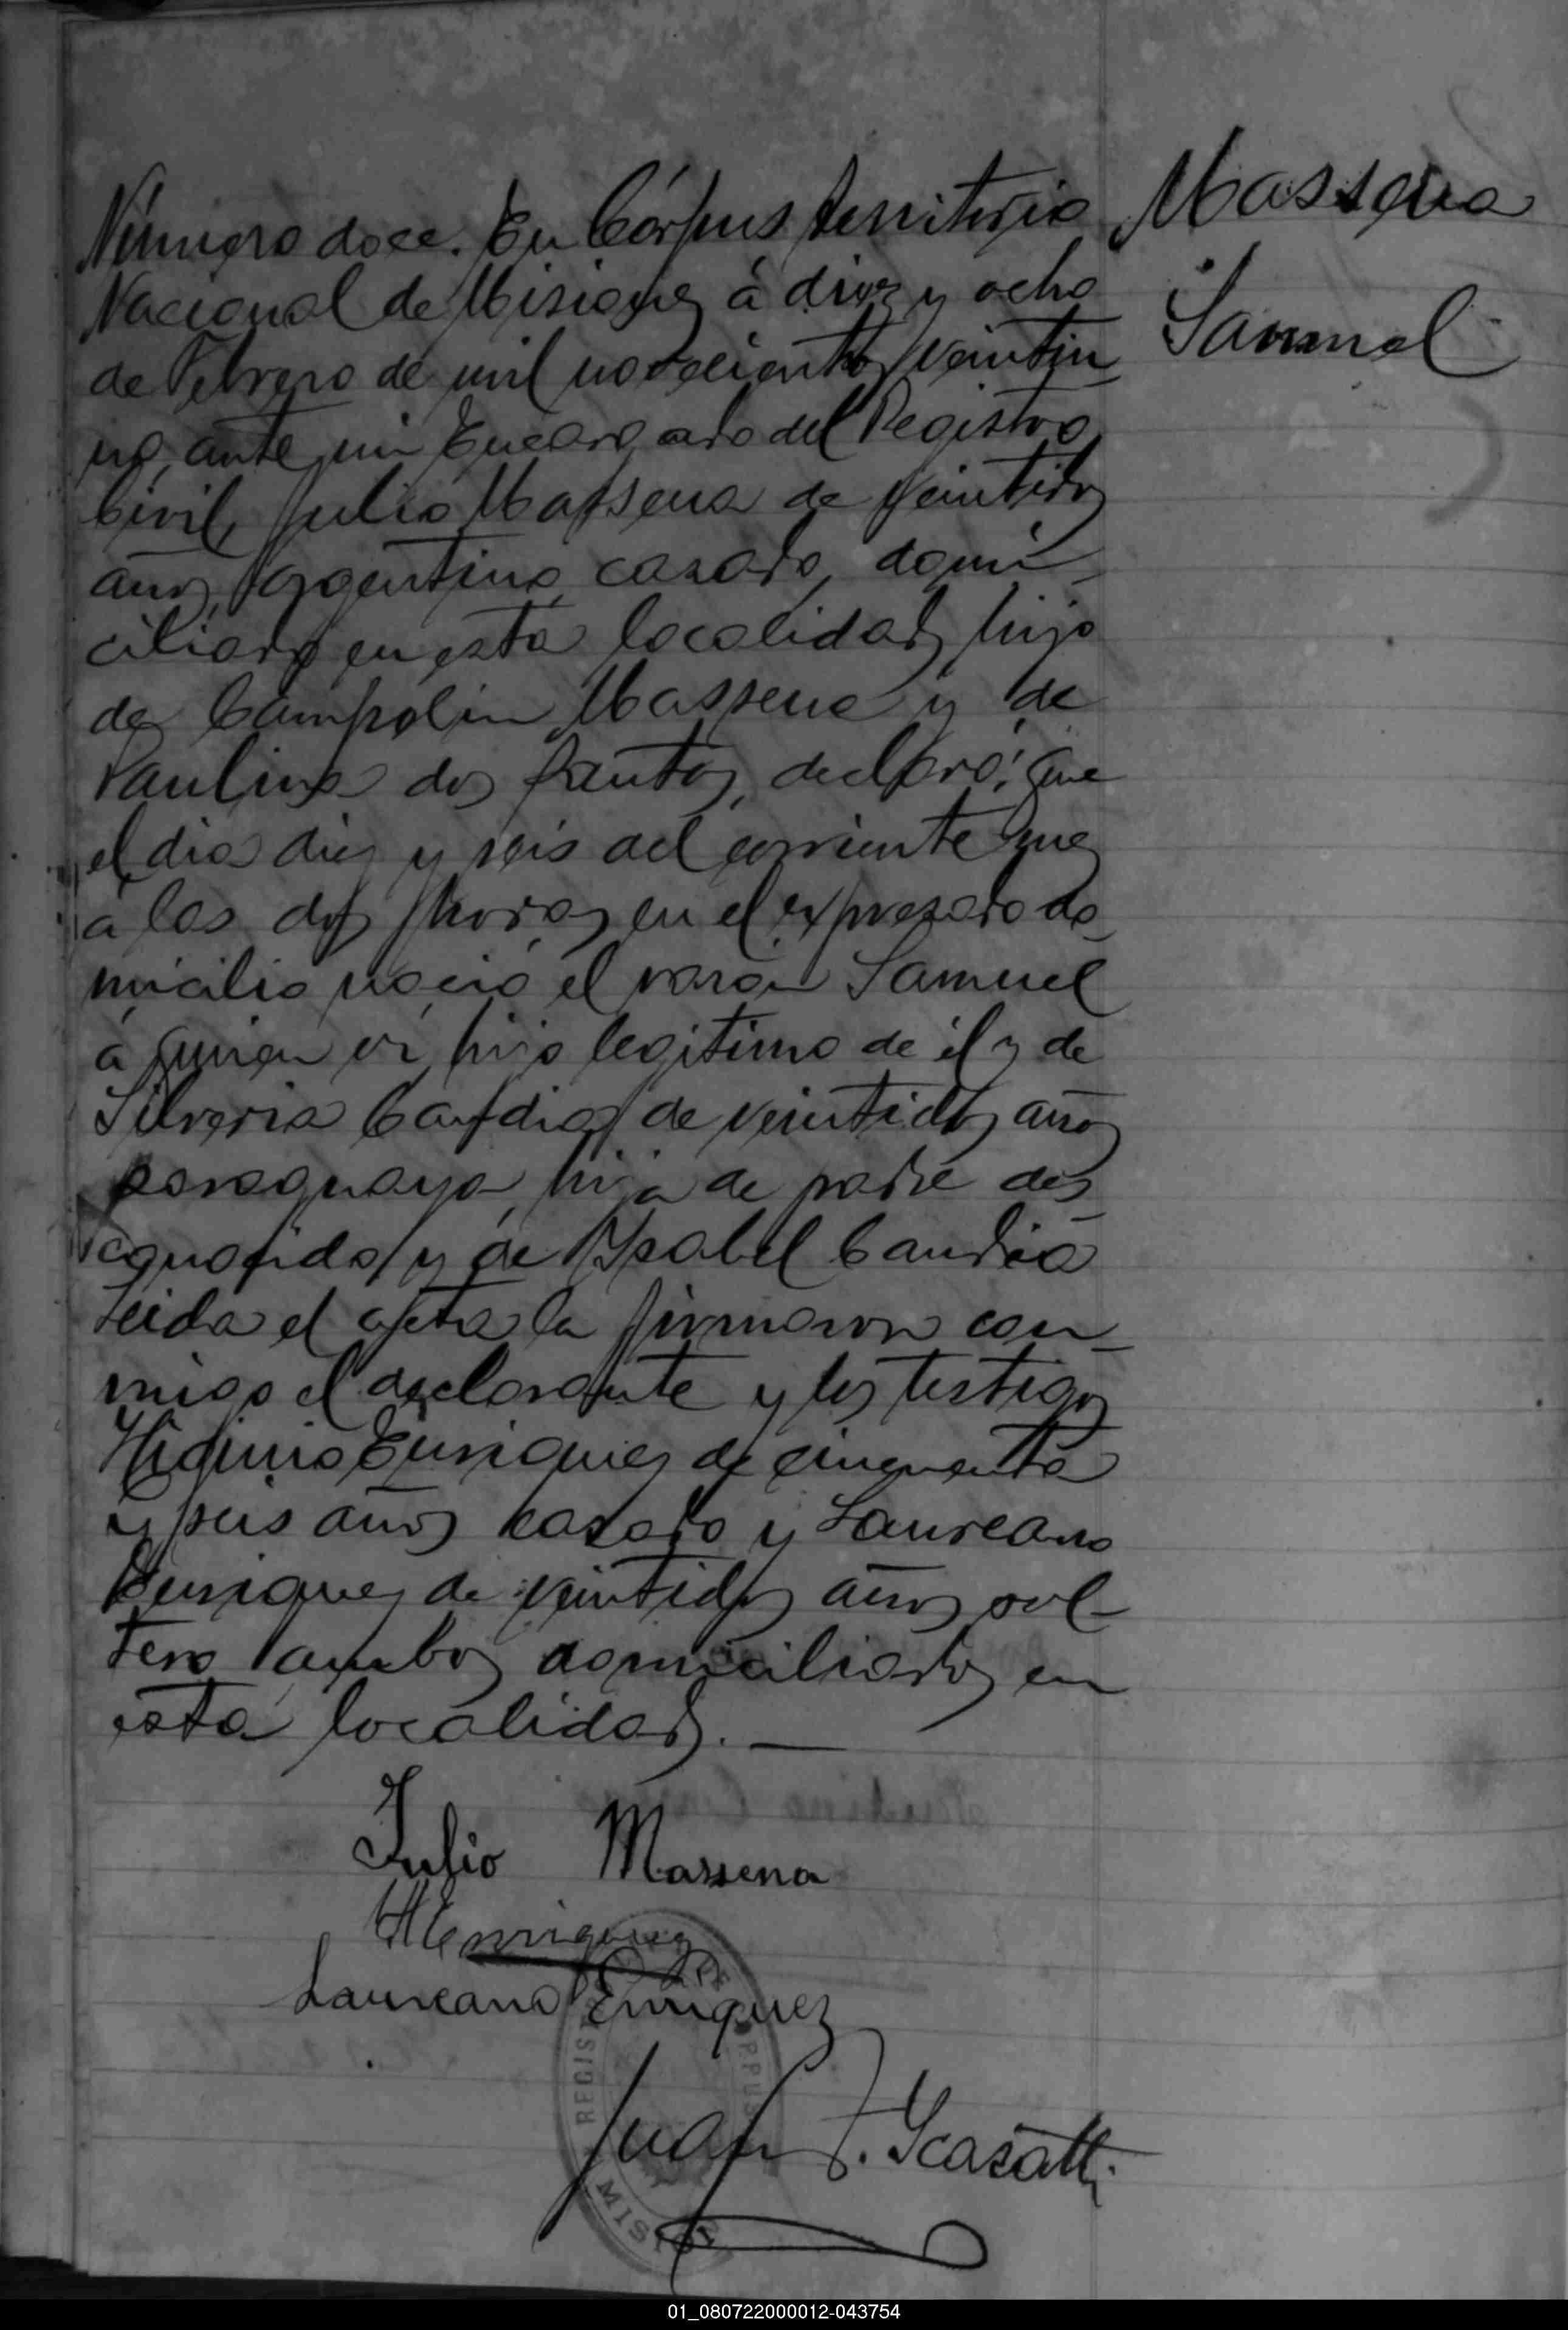 Número doce. En Córpus territorio
Nacional de Misiones á diez y ocho
de Febrero de mil novecientos veintiu
no, ante mi Encargado del Registro
Civil, Julio Massena de veintidos
años, Argentino, casado, domi-
ciliado en esta localidad, hijo
de Campolin Massena y de
Paulina dos Santos, declaró: Que
el dia diez y seis del corriente mes
á las dos horas en el expresado do-
micilio nació el varon Samuel
á quien vi, hijo legitimo de él y de
Silveria Candia, de veintidos años
paraguaya, hija de padre des-
conocido y de Ysabel Candia
Leida el acta la firmaron con-
migo el declarante y los testigos
Higinio Enriquez de cincuenta
y seis años casado y Laureano
Enriquez de veintidos años sol-
tero ambos domiciliados en
esta localidad. —
Massena
Samuel
Julio Massena
HEnriquez
Laureano Enriquez
Juan F. Scasatti
REGIST
MISIO
01_080722000012-043754